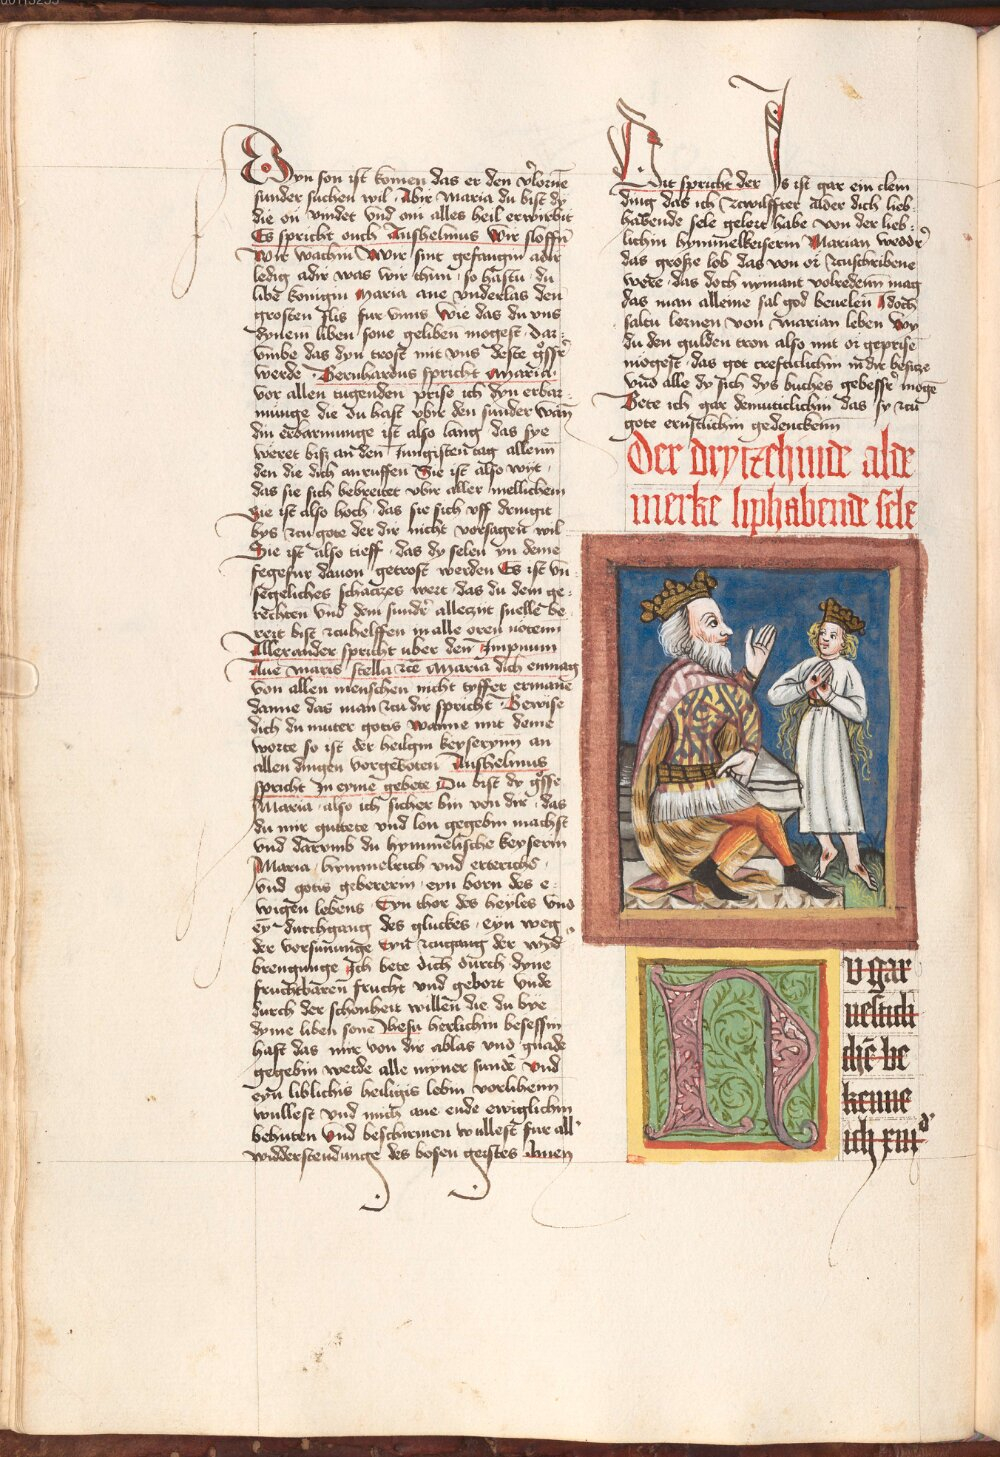 Dyn son ist komen das er den vˀlorne
sunder suchen wil · Abir maria du bist dy
die on vindet vnd om alles heil erwirbit
Es spricht ouch Anshelmus Wir sloffn
Wir wachin Wir sint gefangin adir
ledig adir was wir thun · so hastu · du
libe konigin maria ane vnderlas den
grosten flis fur vnns Wie das du vns
dynem liben sone geliben mogest · Dar
vmbe das dyn trost mit vns deste gˀssˀ
werde · Bernhardus spricht maria ·
vor allen tugenden prise ich dyn erbar
munge die du hast vbir den sunder wan
din erbarmunge ist also lang das sye
weret bisz an den Jungisten tag allenn
den die dich anruffen Sie ist also wit ·
das sie sich bebreitet vbir aller mellichem
Sie ist also hoch · das sie sich vff dringit
bys zcu gote der dir nicht vorsagen wil
Sie ist also tieff · das dy selen yn deme
fegefur dauon getrost werden Es ist vn
segeliches schatzes wert · das du dem ge
rechten vnd dem sundˀ alleczijt snelle be
reit bist zcuhelffen in alle oren notenn
Allexander spricht uber den Impnum
Aue maris stella zcu Maria dich enmag
von allen menschen nicht tyffer ermane
danne das man zcu dir spricht · Bewise
dich du muter gotis wanne mit deme
worte so ist der heilgin keyserynn an
allen dingen vorgeboten Anshelmus
spricht In eyme gebete Du bist dy gˀsse
Maria · also ich sicher bin von dir · das
du mir guttete vnd lon gegebin machst
vnd darumb du hymmelische keyserin
Maria · hymmelrich vnd erterichs ·
vnd gotis gebererin · eyn born des e ·
wigen lebens · Eyn thor des heyles vnd
ey durchgang des gluckes · eyn weg
der vorsununge eyn zcugang der wyd
brengunge Ich bete dich durch dyne
fruchtbaren frucht vnd gebort vnde
durch der schonheit willen die du bye
dyme liben sone Jhesu herlichin besessin
hast das mir von dir ablas vnd gnade
gegebin werde alle myner sunde vnd
eyn liblichis heiligis lebin vorlihenn
wullest vnd mich ane ende ewiglichin
behuten vnd beschirmen wullest fur all
widderstendunge des bosen geistes Amen
Hut spricht der Js ist gar ein clein
ding das ich zcwilffter alder dich lieb
habende sele gelert habe von der lieb
lichin hymmelkeiserin Marian weddˀ
das große lob das von or zcuschribene
were · das doch nymant volredenn mag
das man alleine sal god beuelen Idoch
saltu lernen von marian leben Wy
du den gulden tron also mit or geprise
mogest · das got crefticlichin in dir besitze
vnd alle dy sich dys buches gebessˀ moge
Bete ich gar demuticlichin das sy zcu
gote ernstlichin gedenckenn
Der dryczehinde alde
merke liphabende sele
U gar
uesticli
chē be
kenne
ich xiijᵈ